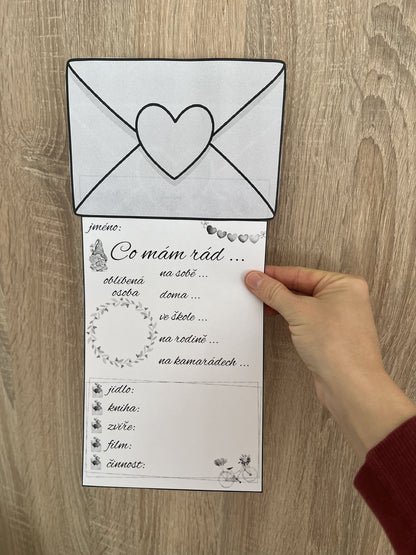 jméno:
Co mám rád ...
na sobě ...
oblíbená
osoba
doma ...
ve škole ...
na rodině ...
na kamarádech ...
jídlo:
kniha:
zvíře:
film:
činnost: